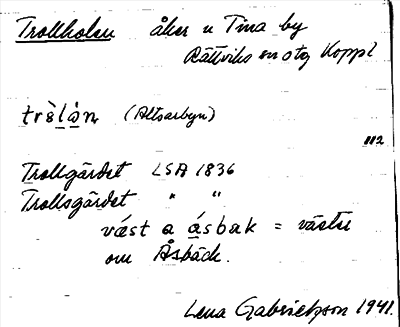 Trollholen åker u Tina by
Rättviks sn otg Koppl
trɛ̀lån (Altsarbyn)
112
Trollgärdet LSA 1836
Trollsgärdet " "
væst a ásbak = väster
om Åsbäck.
Lena Gabrielsson 1941.